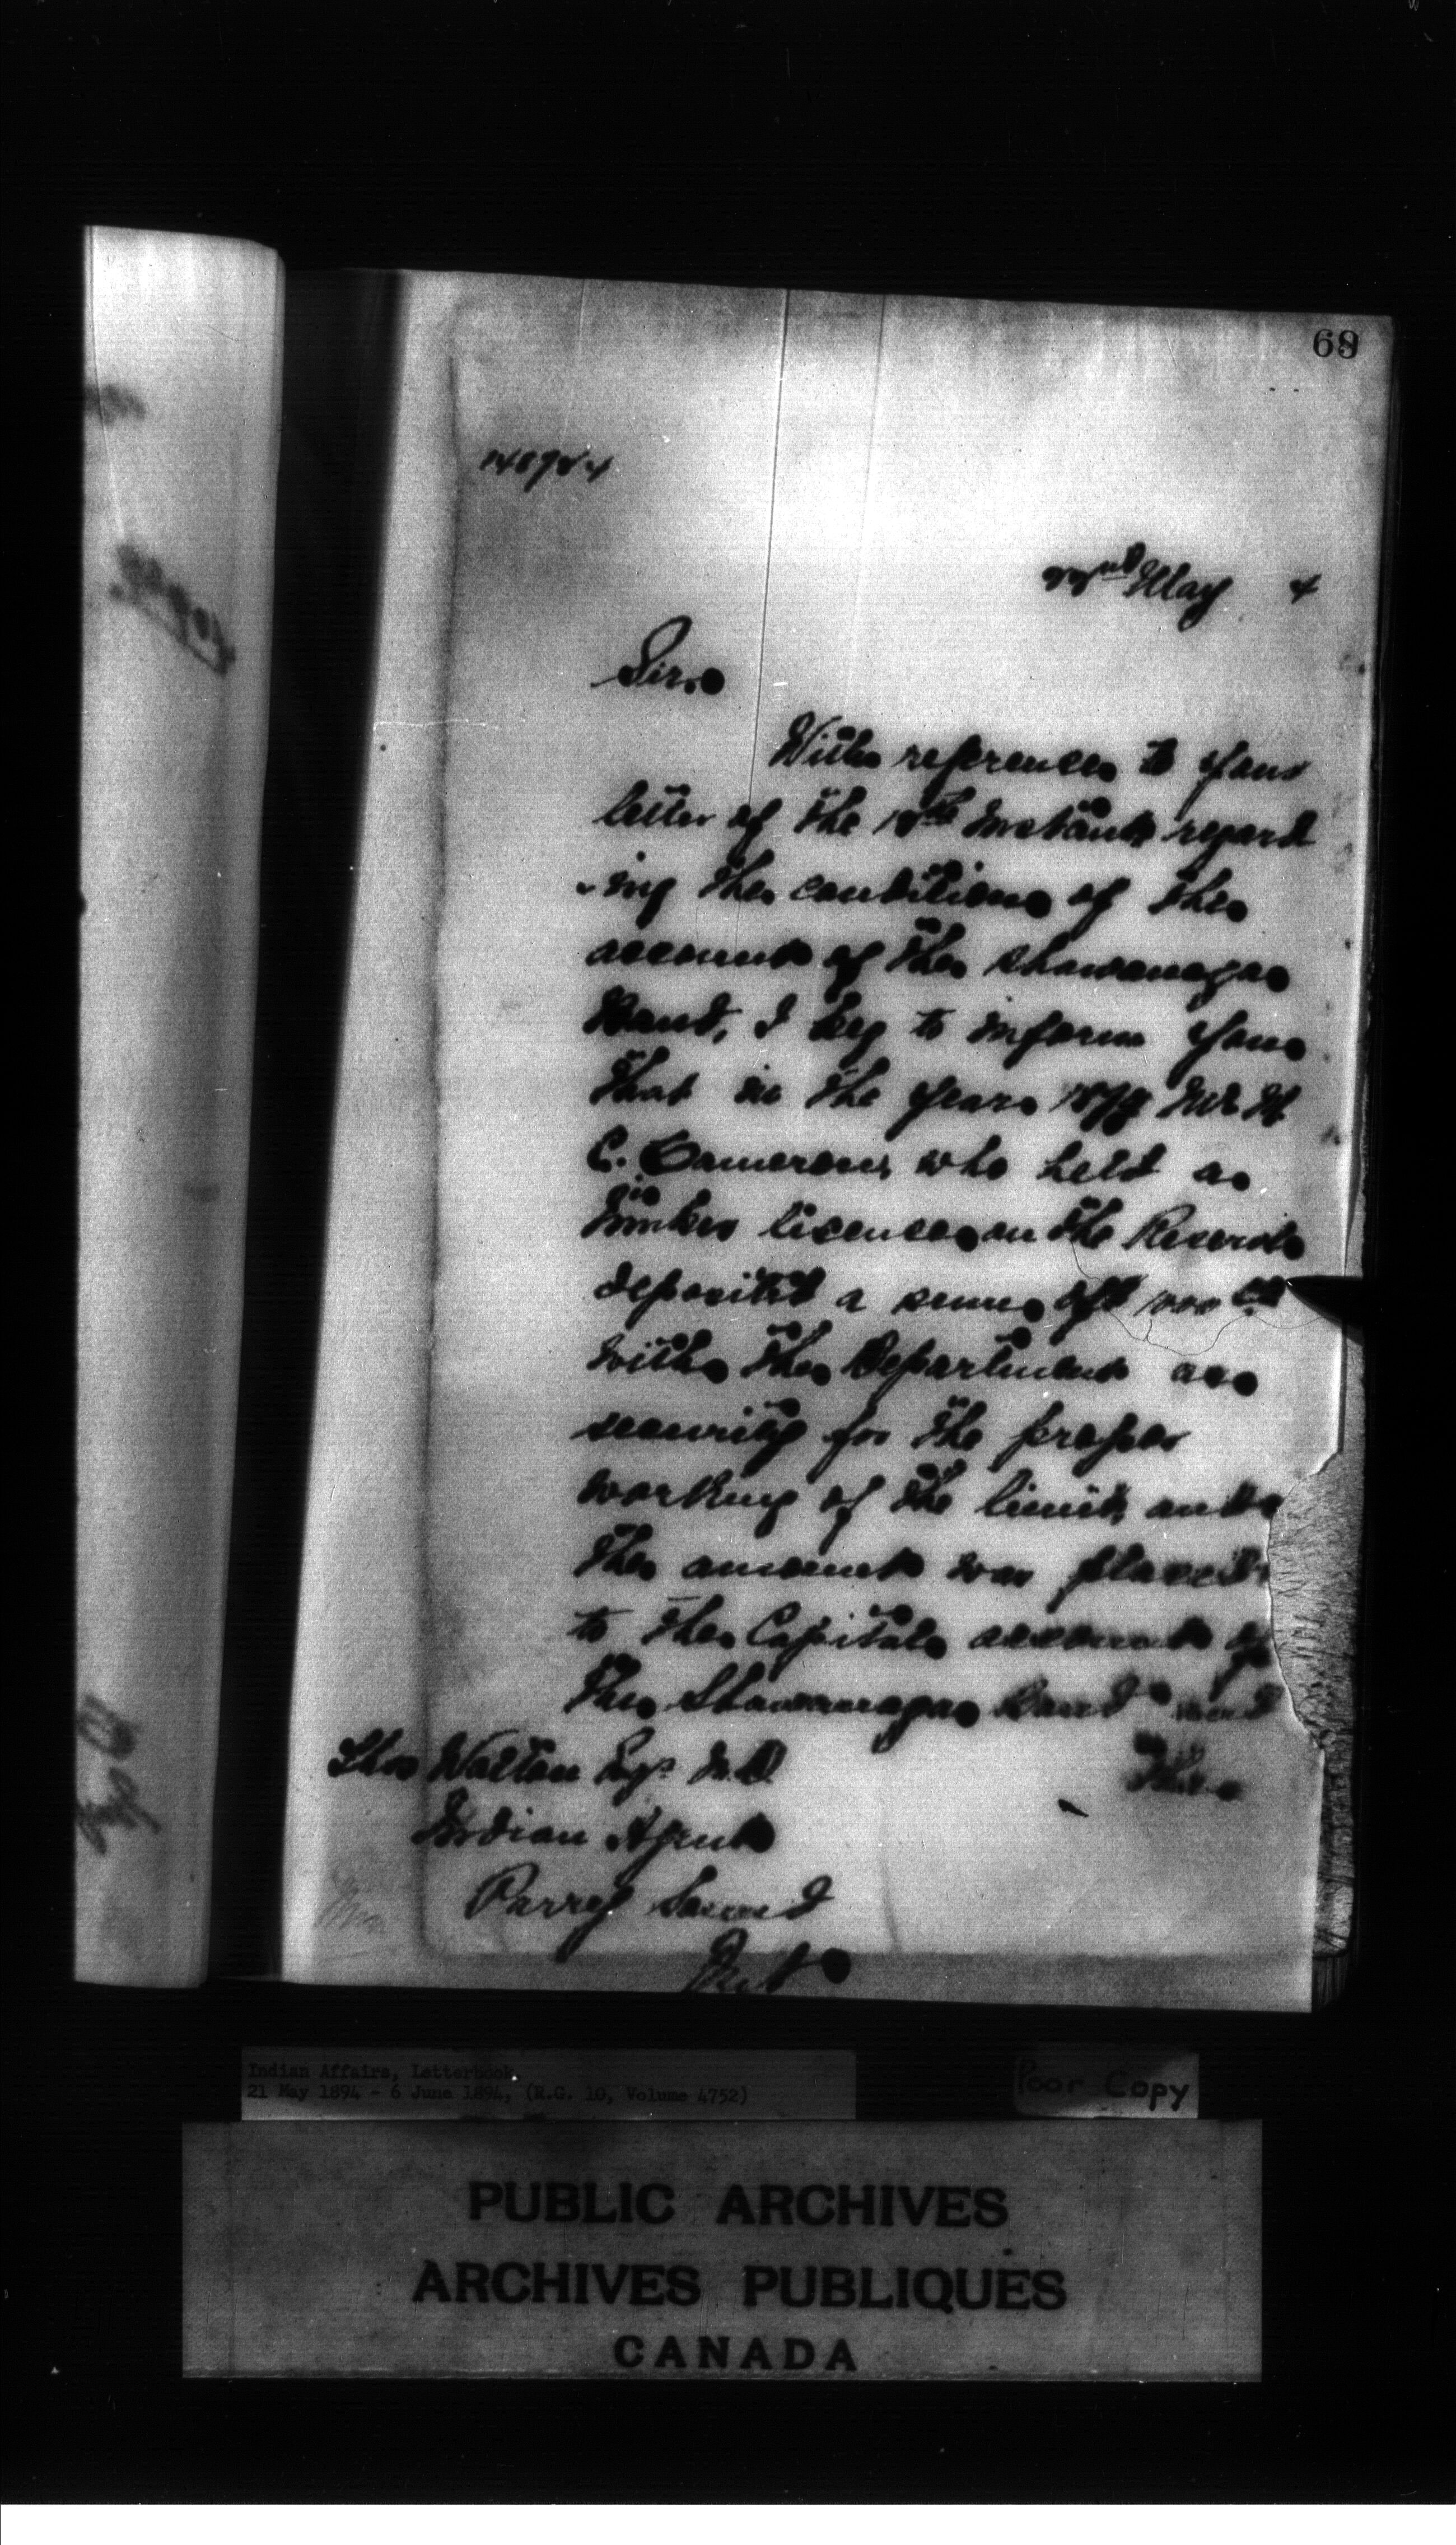 69
148984
22nd May 4
Sir,
With reference to your
letter of the 18th Instant regard
-ing the condition of the
account of the Shawanaga
Band, I beg to inform you
that in the year Mr
C. Cameron, who held a
timber license on the Reserve
deposited a sum of $1000
with the Department as
security for the proper
working of the limit, and
the amount was placed
to the Capital account of
the Shawanaga Band and
Thos Walton Esq. M.D.
Indian Agent
Parry Sound
Ont
Indian Affairs, Letterbook,
21 May 1894 - 6 June 1894, (R.G. 10, Volume 4752)
Poor Copy
PUBLIC ARCHIVES
ARCHIVES PUBLIQUES
CANADA